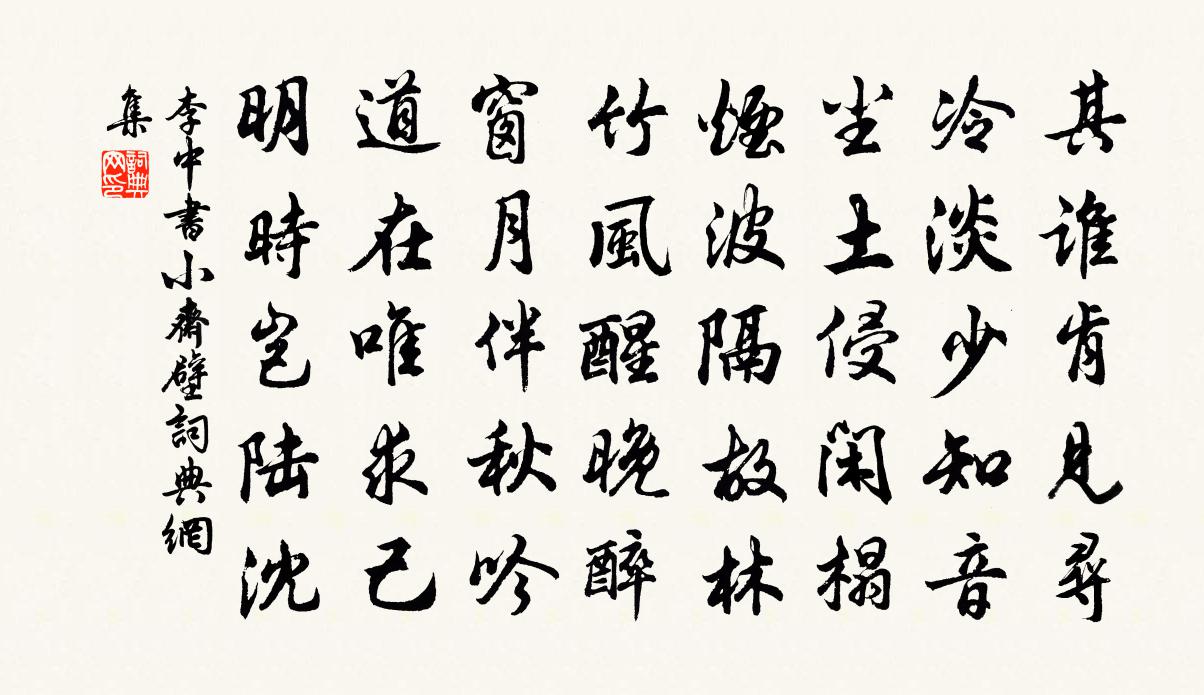 其誰肯見尋
冷淡少知音
尘土侵閑榻
煙波隔故林
竹風醒晚醉
窗月伴秋吟
道在唯求己
明時豈陸沈
李中書小齋壁詞典網
集
詞典
网印